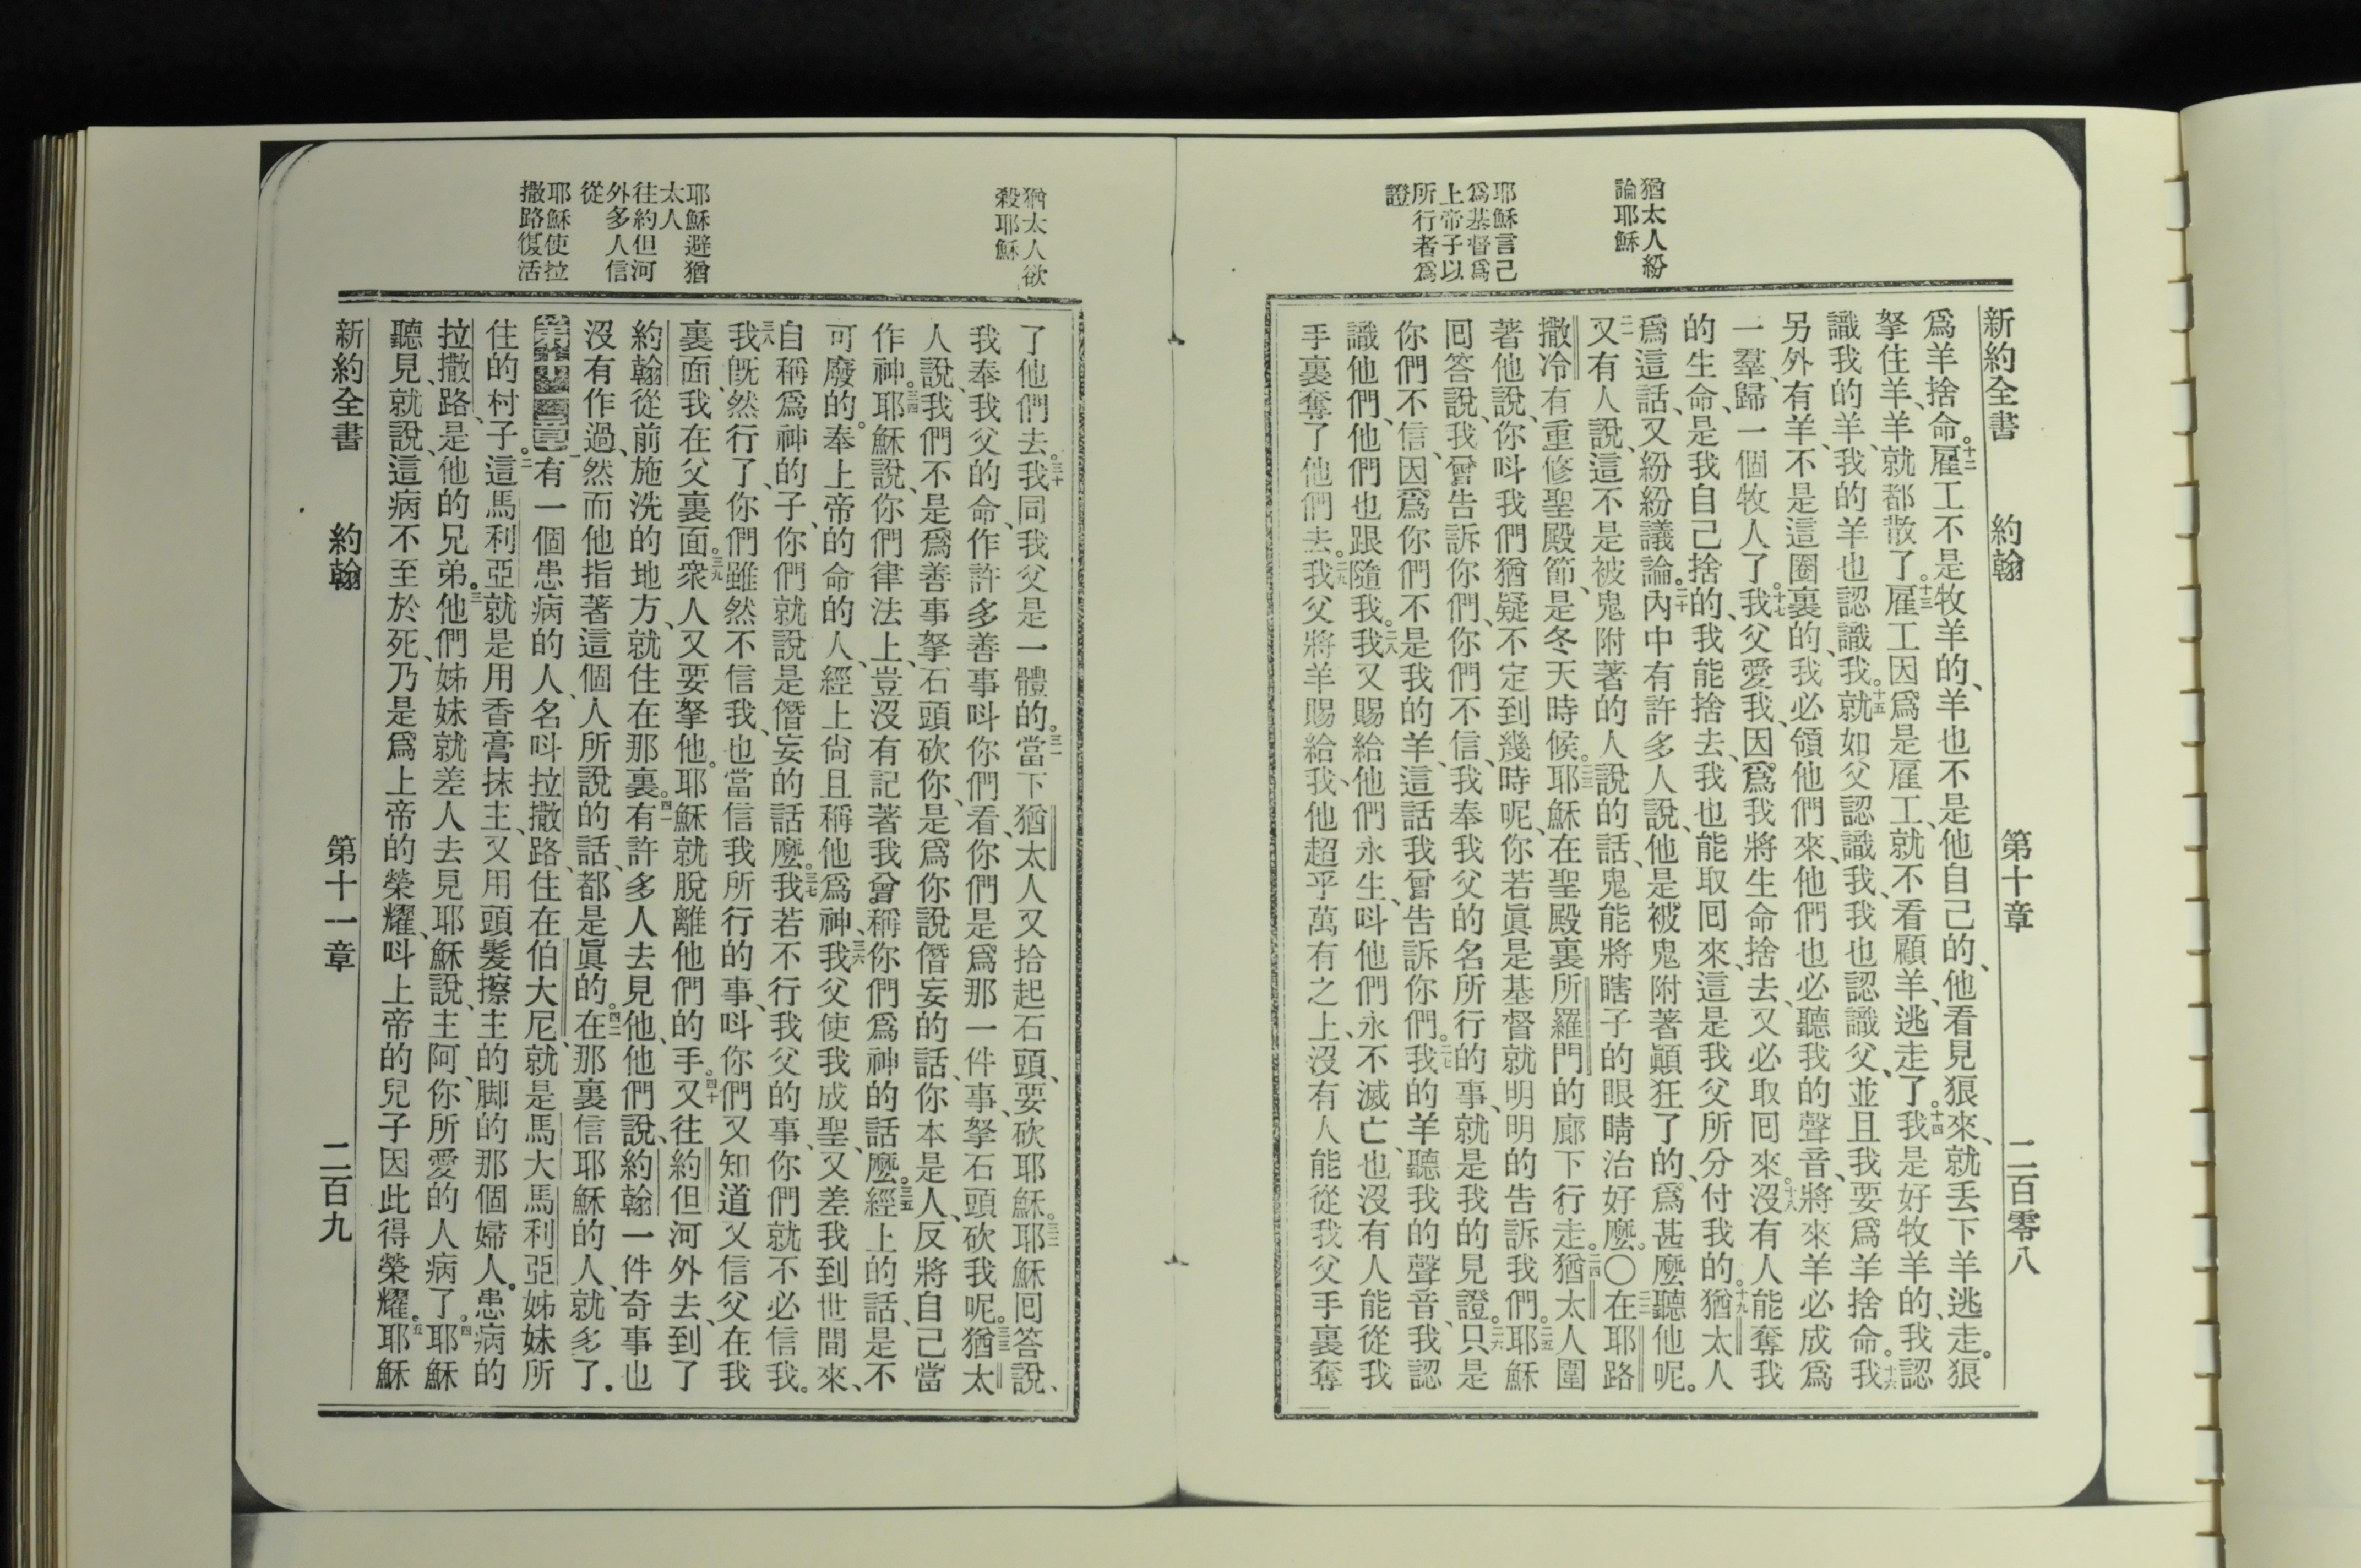 猶太人紛
論耶穌
耶穌言己
爲基督爲
上帝子以
所行者爲
證
新約全書 約翰 第十章 二百零八
爲羊捨命。十二雇工不是牧羊的、羊也不是他自己的、他看見狼來、就丢下羊逃走。狼
拏住羊、羊就都散了。十三雇工因爲是雇工、就不看顧羊、逃走了。十四我是好牧羊的、我認
識我的羊、我的羊也認識我。十五就如父認識我、我也認識父、並且我要爲羊捨命。十六我
另外有羊、不是這圈裏的、我必領他們來、他們也必聽我的聲音、將來羊必成爲
一羣、歸一個牧人了。十七我父愛我、因爲我將生命捨去、又必取囘來。十八沒有人能奪我
的生命、是我自己捨的、我能捨去、我也能取囘來、這是我父所分付我的。十九猶太人
爲這話、又紛紛議論。二十內中有許多人說、他是被鬼附著顚狂了的、爲甚麽聽他呢。
二一又有人說、這不是被鬼附著的人說的話、鬼能將瞎子的眼睛治好麽。〇二二在耶路
撒冷有重修聖殿節、是冬天時候。二三耶穌在聖殿裏所羅門的廊下行走。二四猶太人圍
著他說、你呌我們猶疑不定到幾時呢、你若眞是基督就明明的告訴我們。二五耶穌
囘答說、我曾告訴你們、你們不信、我奉我父的名所行的事、就是我的見證。二六只是
你們不信、因爲你們不是我的羊、這話我曾告訴你們。二七我的羊聽我的聲音、我認
識他們、他們也跟隨我。二八我又賜給他們永生、呌他們永不滅亡、也沒有人能從我
手裏奪了他們去。二九我父將羊賜給我、他超乎萬有之上、沒有人能從我父手裏奪
猶太人欲
殺耶穌
耶穌避猶
太人
往約但河
外多人信
從
耶穌使拉
撒路復活
了他們去。三十我同我父是一體的。三一當下猶太人又拾起石頭、要砍耶穌。三二耶穌囘答說、
我奉我父的命、作許多善事呌你們看、你們是爲那一件事、拏石頭砍我呢。三三猶太
人說、我們不是爲善事拏石頭砍你、是爲你說僭妄的話、你本是人、反將自己當
作神。三四耶穌說、你們律法上、豈沒有記著我曾稱你們爲神的話麽。三五經上的話、是不
可廢的。奉上帝的命的人、經上尙且稱他爲神、三六我父使我成聖、又差我到世間來、
自稱爲神的子、你們就說是僭妄的話麽。三七我若不行我父的事、你們就不必信我。
三八我既然行了、你們雖然不信我、也當信我所行的事、呌你們又知道又信父在我
裏面、我在父裏面。三九衆人又要拏他。耶穌就脫離他們的手。四十又往約但河外去、到了
約翰從前施洗的地方、就住在那裏。四一有許多人去見他、他們說、約翰一件奇事也
沒有作過、然而他指著這個人所說的話、都是眞的。四二在那裏信耶穌的人、就多了。
第十一章一有一個患病的人、名呌拉撒路、住在伯大尼、就是馬大馬利亞姊妹所
住的村子。二這馬利亞就是用香膏抹主、又用頭髮擦主的脚的那個婦人。患病的
拉撒路、是他的兄弟。三他們姊妹就差人去見耶穌說、主阿、你所愛的人病了。四耶穌
聽見、就說、這病不至於死、乃是爲上帝的榮耀、呌上帝的兒子因此得榮耀。五耶穌
新約全書 約翰 第十一章 二百九